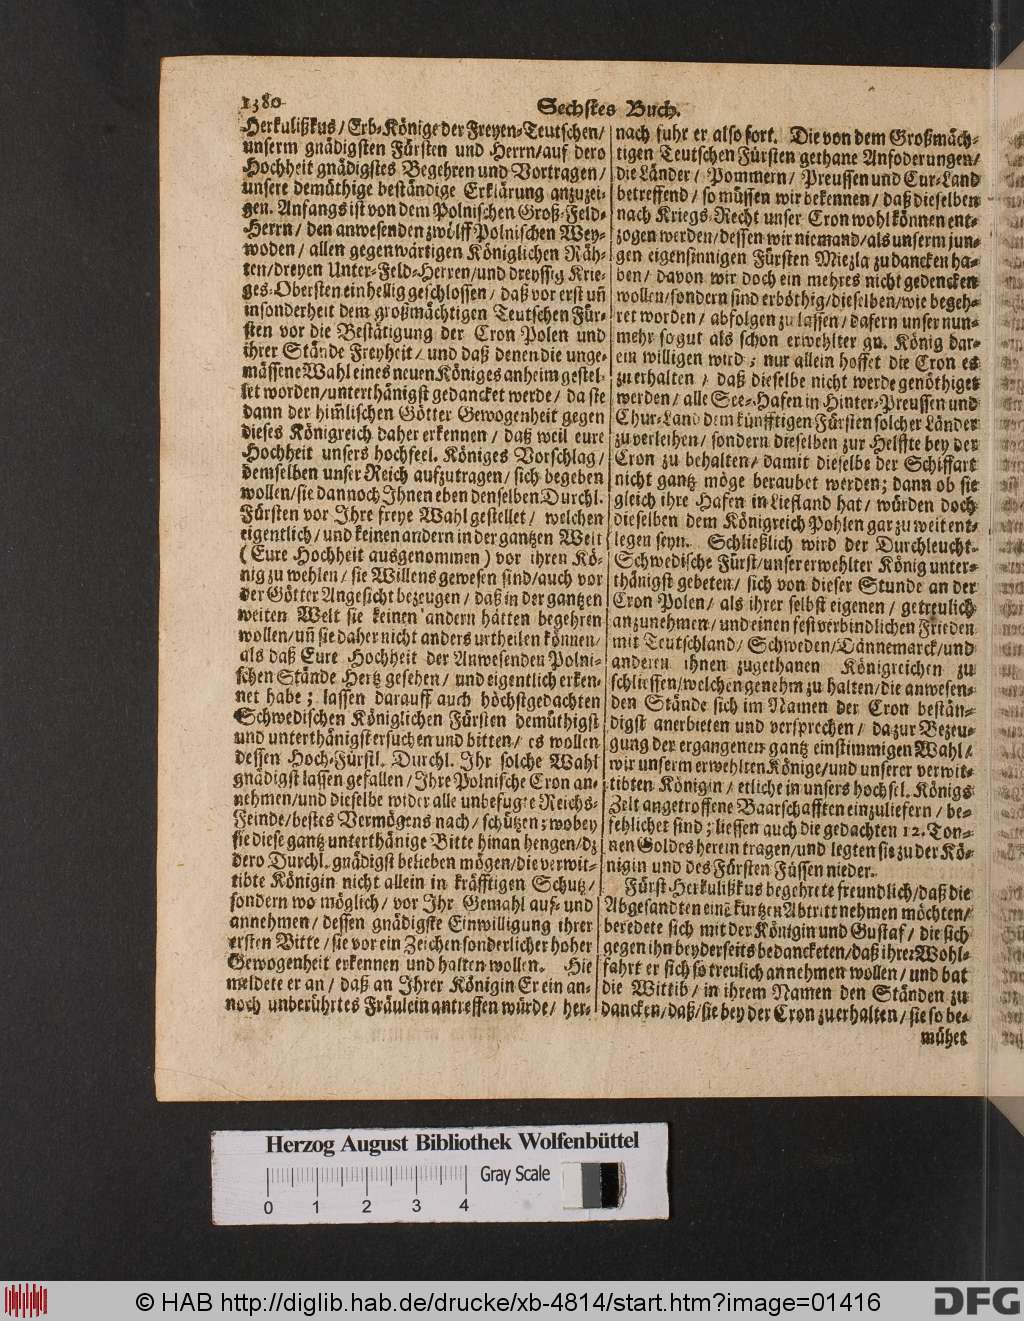 1380
Sechstes Buch.
Herkulißkus/ Erb-Könige der Freyen-Teutschen/
unserm gnädigsten Fürsten und Herrn/ auf dero
Hochheit gnädigstes Begehren und Vortragen/
unsere demüthige beständige Erklärung anzuzei-
gen. Anfangs ist von dem Polnischen Groß-Feld-
Herrn/ den anwesenden zwölff Polnischen Wey-
woden/ allen gegenwärtigen Königlichen Räh-
ten/ dreyen Unter-Feld-Herren/ und dreyssig Krie-
ges-Obersten einhellig geschlossen/ daß vor erst uñ
insonderheit dem großmächtigen Teutschen Für-
sten vor die Bestätigung der Cron Polen und
ihrer Stände Freyheit/ und daß denen die unge-
mässene Wahl eines neuen Königes anheim gestel-
let worden/ unterthänigst gedancket werde/ da sie
dann der him̃lischen Götter Gewogenheit gegen
dieses Königreich daher erkennen/ daß weil eure
Hochheit unsers hochseel. Königes Vorschlag/
demselben unser Reich aufzutragen/ sich begeben
wollen/ sie dannoch Ihnen eben denselben Durchl.
Fürsten vor Ihre freye Wahl gestellet/ welchen
eigentlich/ und keinen andern in der gantzen Welt
(Eure Hochheit ausgenommen) vor ihren Kö-
nig zu wehlen/ sie Willens gewesen sind/ auch vor
der Götter Angesicht bezeugen/ daß in der gantzen
weiten Welt sie keinen andern hätten begehren
wollen/ uñ sie daher nicht anders urtheilen können/
als daß Eure Hochheit der Anwesenden Polni-
schen Stände Hertz gesehen/ und eigentlich erken-
net habe; lassen darauff auch höchstgedachten
Schwedischen Königlichen Fürsten demüthigst
und unterthänigst ersuchen und bitten/ es wollen
dessen Hoch-Fürstl. Durchl. Ihr solche Wahl
gnädigst lassen gefallen/ Ihre Polnische Cron an-
nehmen/ und dieselbe wider alle unbefugte Reichs-
Feinde/ bestes Vermögens nach/ schützen; wobey
sie diese gantz unterthänige Bitte hinan hengen/ dz
dero Durchl. gnädigst belieben mögen/ die verwit-
tibte Königin nicht allein in kräfftigen Schutz/
sondern wo möglich/ vor Ihr Gemahl auf- und
annehmen/ dessen gnädigste Einwilligung ihrer
ersten Bitte/ sie vor ein Zeichen sonderlicher hoher
Gewogenheit erkennen und halten wollen. Hie
meldete er an/ daß an Ihrer Königin Er ein an-
noch unberührtes Fräulein antreffen würde/ her-
nach fuhr er also fort. Die von dem Großmäch-
tigen Teutschen Fürsten gethane Anfoderungen/
die Länder/ Pommern/ Preussen und Cur-Land
betreffend/ so müssen wir bekennen/ daß dieselben
nach Kriegs-Recht unser Cron wohl können ent-
zogen werden/ dessen wir niemand/ als unserm jun-
gen eigensinnigen Fürsten Miezla zu dancken ha-
ben/ davon wir doch ein mehres nicht gedencken
wollen/ sondern sind erböthig/ dieselben/ wie begeh-
ret worden/ abfolgen zu lassen/ dafern unser nun-
mehr so gut als schon erwehlter gn. König dar-
ein willigen wird; nur allein hoffet die Cron es
zu erhalten/ daß dieselbe nicht werde genöthiget
werden/ alle See-Hafen in Hinter-Preussen und
Chur-Land dem künfftigen Fürsten solcher Länder
zu verleihen/ sondern dieselben zur Helffte bey der
Cron zu behalten/ damit dieselbe der Schiffart
nicht gantz möge beraubet werden; dann ob sie
gleich ihre Hafen in Liefland hat/ würden doch
dieselben dem Königreich Pohlen gar zu weit ent-
legen seyn. Schließlich wird der Durchleucht.
Schwedische Fürst/ unser erwehlter König unter-
thänigst gebeten/ sich von dieser Stunde an der
Cron Polen/ als ihrer selbst eigenen/ getreulich
anzunehmen/ und einen fest verbindlichen Frieden
mit Teutschland/ Schweden/ Dännemarck/ und
anderen ihnen zugethanen Königreichen zu
schliessen/ welchen genehm zu halten/ die anwesen-
den Stände sich im Namen der Cron bestän-
digst anerbieten und versprechen/ da zur Bezeu-
gung der ergangenen gantz einstimmigen Wahl/
wir unserm erwehlten Könige/ und unserer verwit-
tibten Königin/ etliche in unsers hochsel. Königs
Zelt angetroffene Baarschafften einzuliefern/ be-
fehlichet sind; liessen auch die gedachten 12. Ton-
nen Goldes herein tragen/ und legten sie zu der Kö-
nigin und des Fürsten Füssen nieder.
Fürst Herkulißkus begehrete freundlich/ daß die
Abgesandten einẽ kurtzen Abtritt nehmen möchten/
beredete sich mit der Königin und Gustaf/ die sich
gegen ihn beyderseits bedancketen/ daß ihrer Wohl-
fahrt er sich so treulich annehmen wollen/ und bat
die Wittib/ in ihrem Namen den Ständen zu
dancken/ daß/ sie bey der Cron zu erhalten/ sie so be-
mühet
Herzog August Bibliothek Wolfenbüttel
Gray Scale
0 1 2 3 4
© HAB http://diglib.hab.de/drucke/xb-4814/start.htm?image=01416
DFG